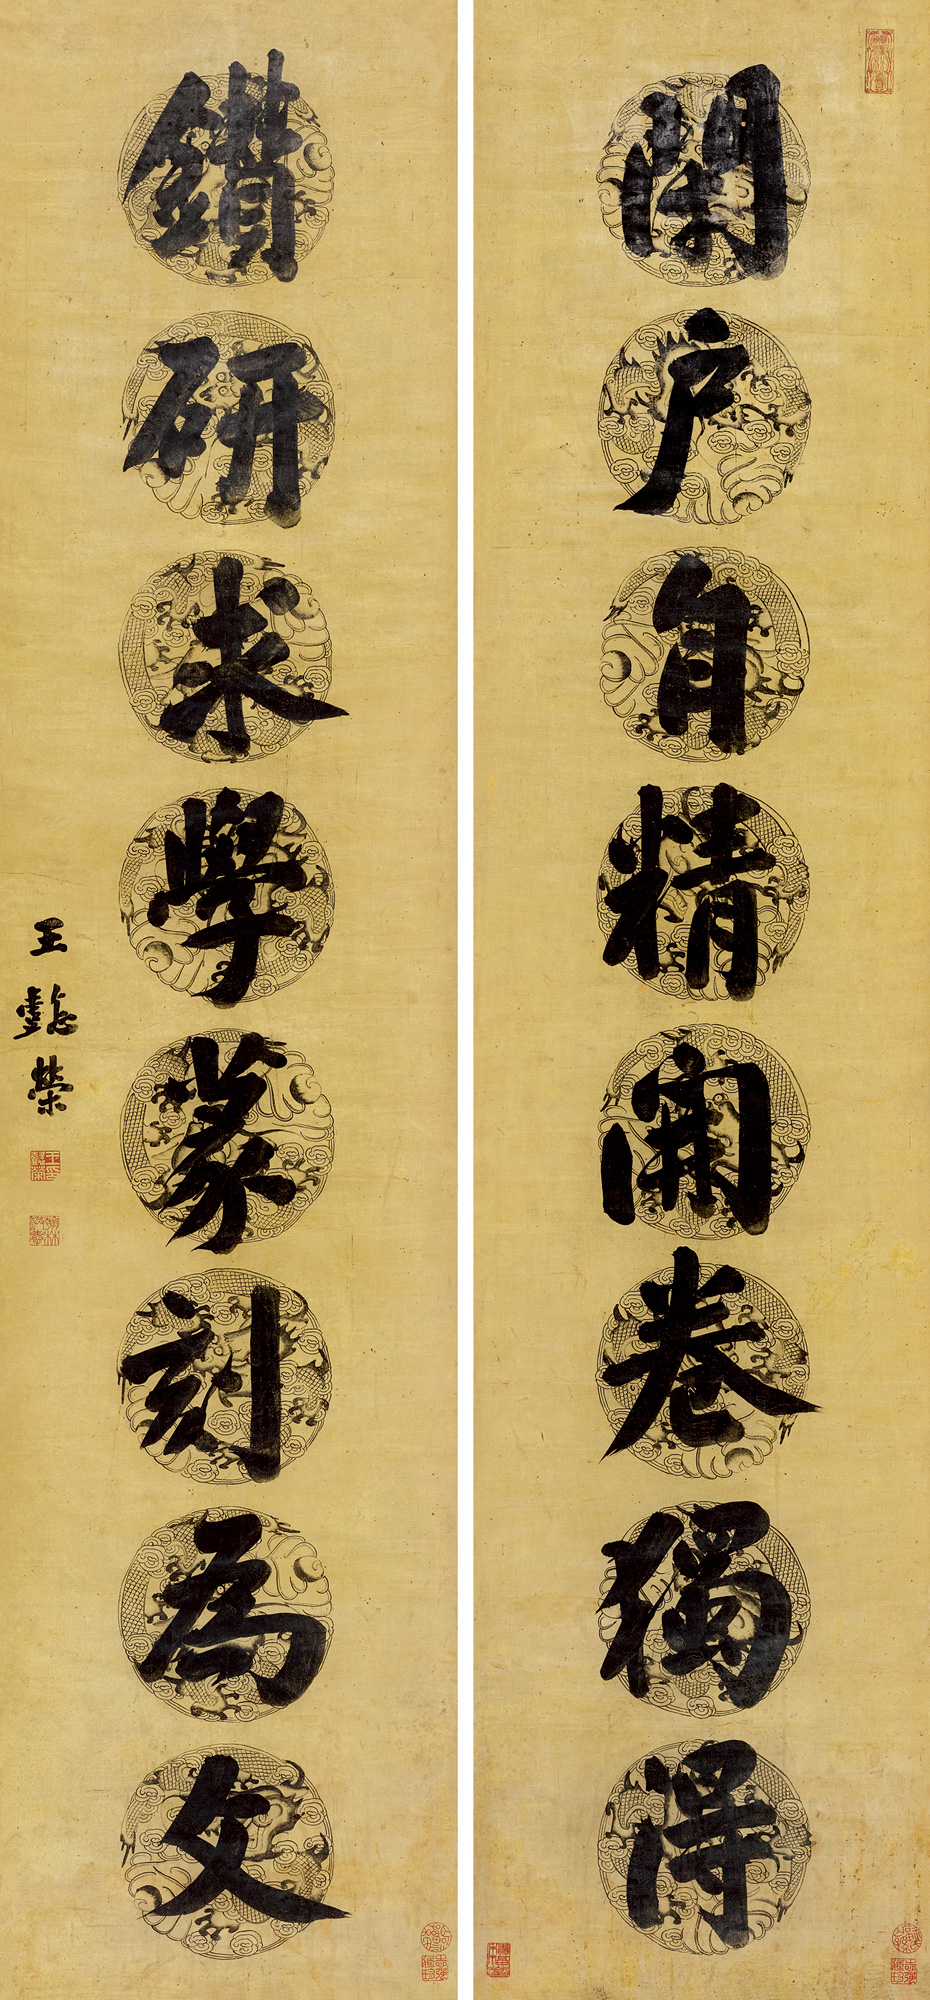 閉戶自精開卷獨得
鑽研求學篆刻為文
王懿榮